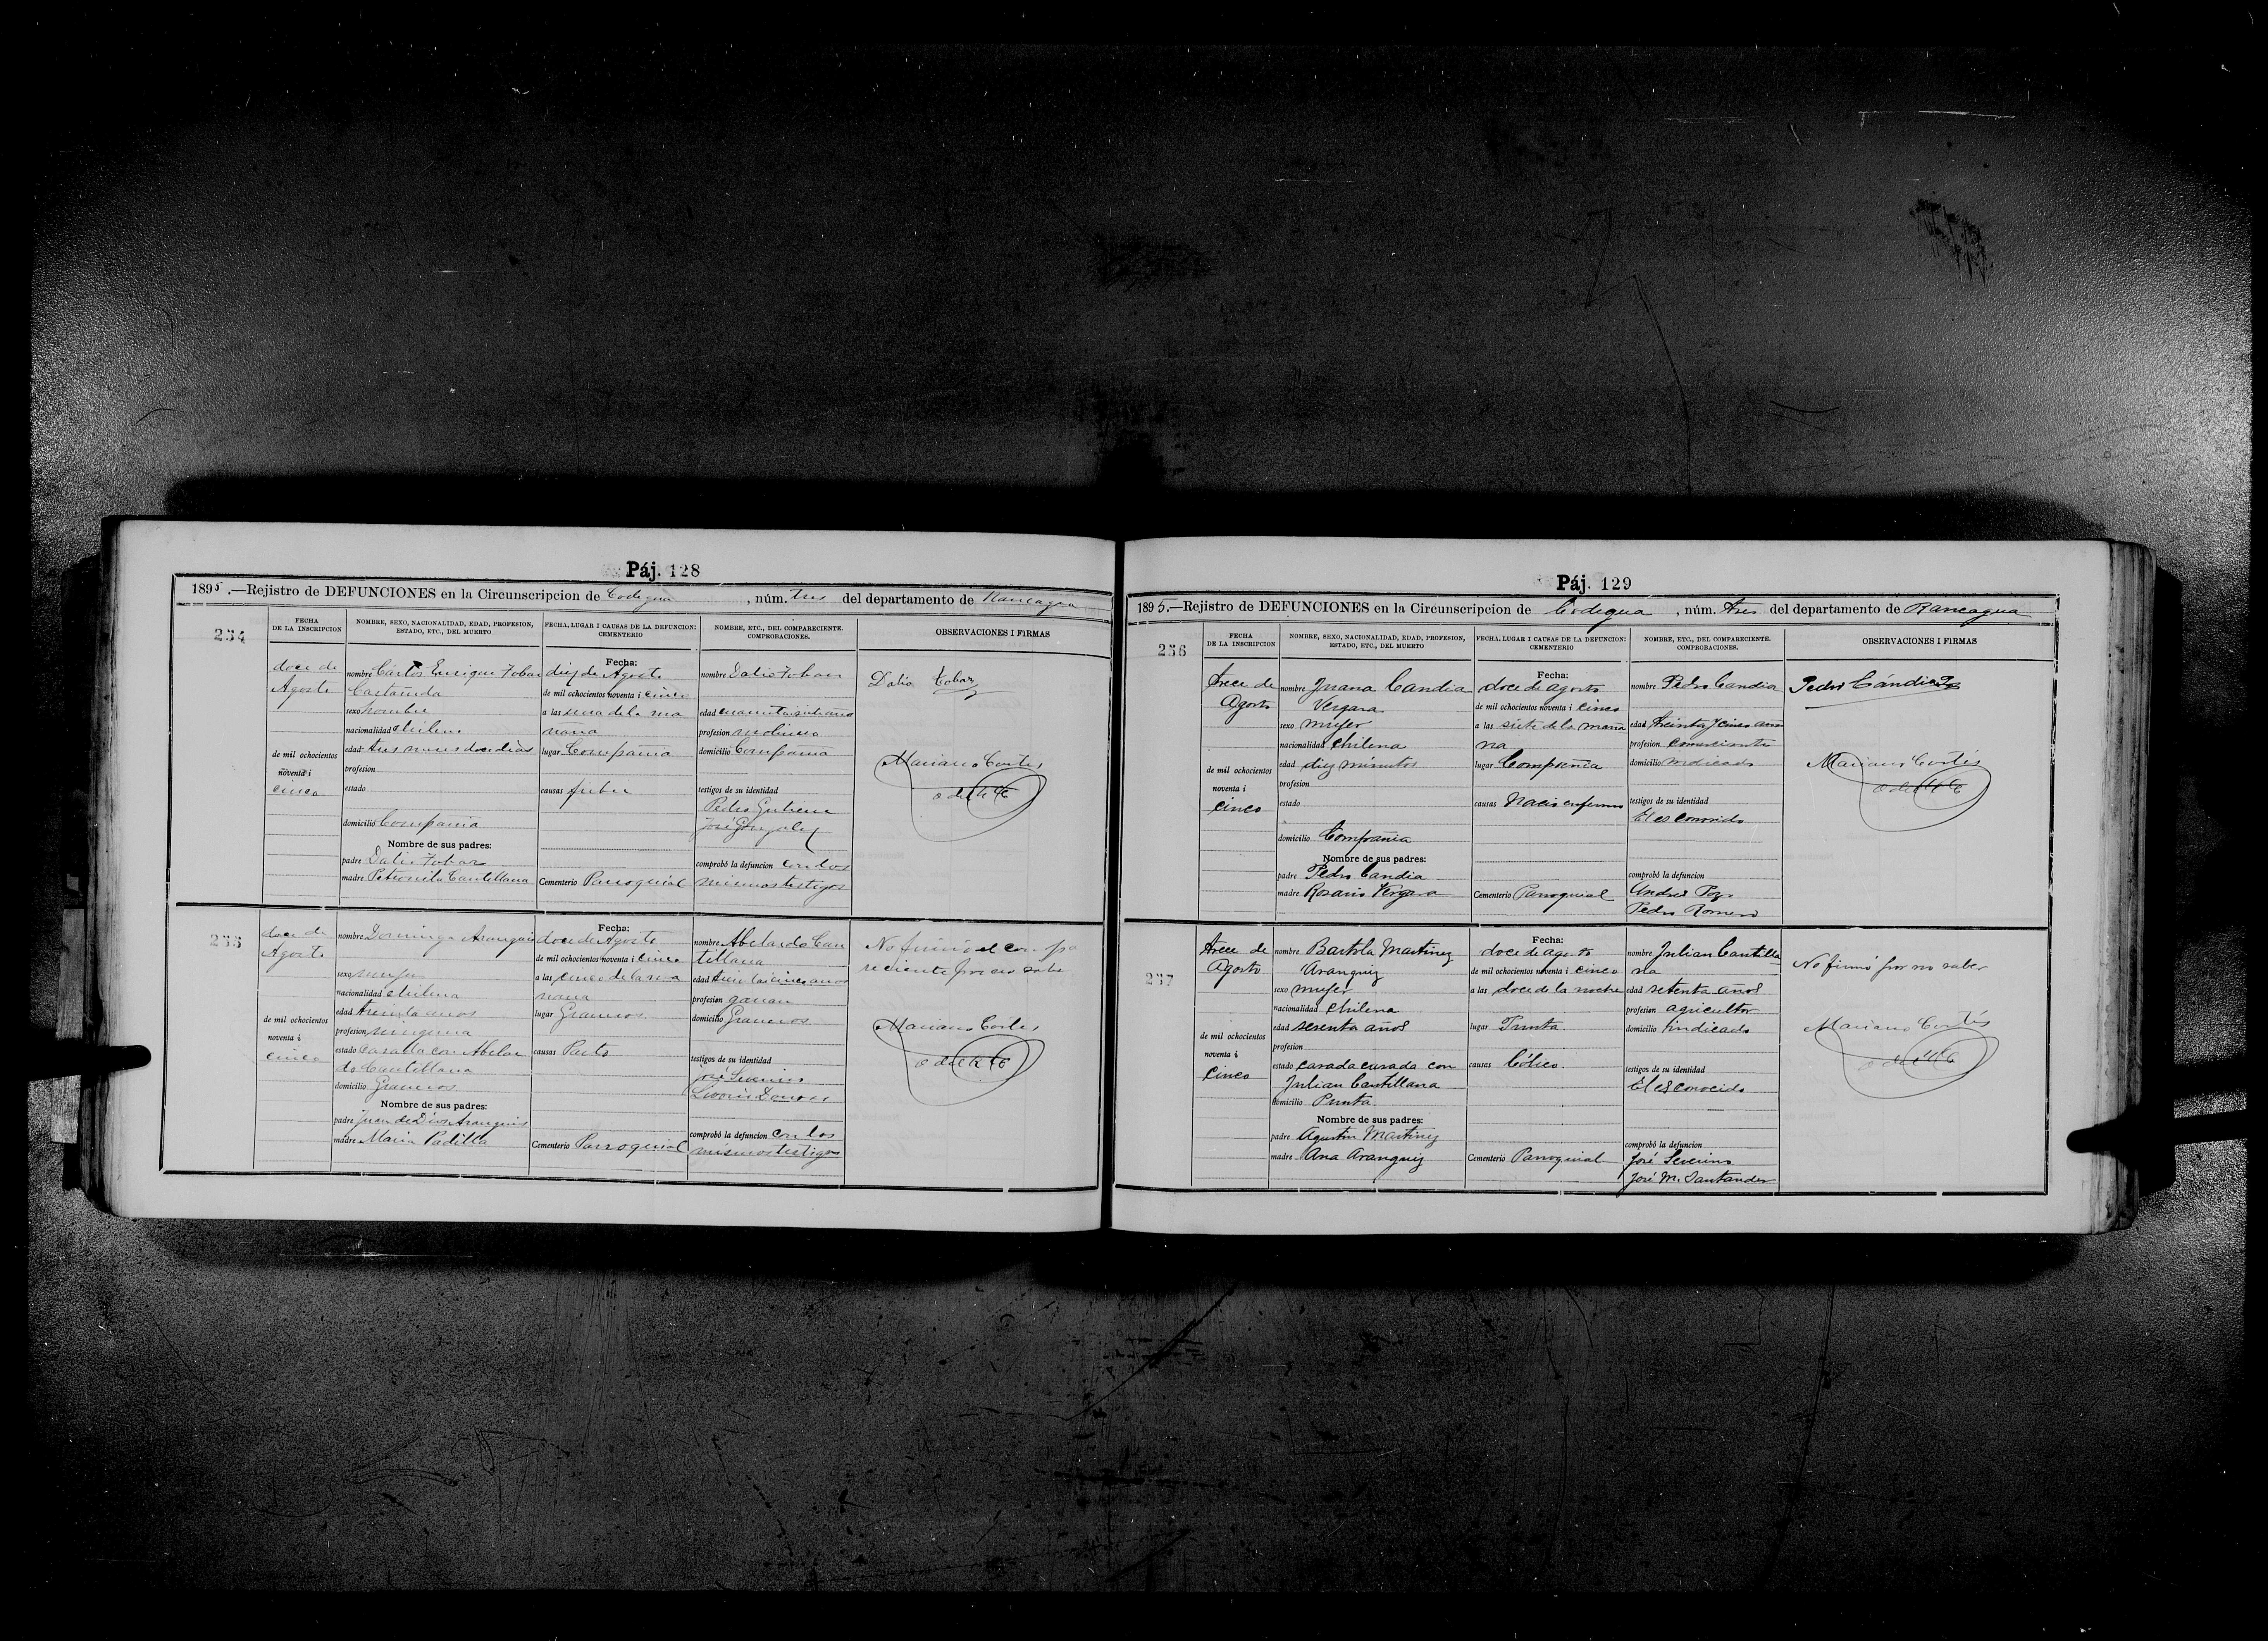 Páj. 128
1895.—Rejistro de DEFUNCIONES en la Circunscripcion de Codegua, núm. tres del departamento de Rancagua
FECHA DE LA INSCRIPCION
NOMBRE, SEXO, NACIONALIDAD, EDAD, PROFESION, ESTADO, ETC., DEL MUERTO
FECHA, LUGAR I CAUSAS DE LA DEFUNCION: CEMENTERIO
NOMBRE, ETC., DEL COMPARECIENTE. COMPROBACIONES.
OBSERVACIONES I FIRMAS
234
doce de
Agosto
de mil ochocientos
noventa i
cinco
nombre Cárlos Enrique Tobar
Castañeda
sexo hombre
nacionalidad chileno
edad tres meses doce dias
profesion
estado
domicilio Compañia
Nombre de sus padres:
padre Dalio Tobar
madre Petronila Cantillana
Fecha:
diez de Agosto
de mil ochocientos noventa i cinco
a las una de la ma
ñana
lugar Compañia
causas fiebre
Cementerio Parroquial
nombre Dalio Tobar
edad cuarenta i siete años
profesion
domicilio Compañia
testigos de su identidad
Pedro
José Gonzalez
comprobó la defuncion con los
mismos testigos
Dalio Tobar
Mariano Cortes
O del R C
235
doce de
Agosto
de mil ochocientos
noventa i
cinco
nombre Dominga Aranguis
sexo mujer
nacionalidad chilena
edad treinta años
profesion ninguna
estado casada con Abelar
do Cantillana
domicilio Graneros
Nombre de sus padres:
padre Juan de Dios Aranguis
madre Maria Padilla
Fecha:
doce de Agosto
de mil ochocientos noventa i cinco
a las cinco de la ma
ñana
lugar Graneros
causas Parto
Cementerio Parroquial
nombre Abelardo Can
tillana
edad treinta i cinco años
profesion gañan
domicilio Graneros
testigos de su identidad
José Severino
comprobó la defuncion con los
mismos testigos
No firmó el compa
reciente por no saber
Mariano Cortes
O del R C
Páj. 129
1895.—Rejistro de DEFUNCIONES en la Circunscripcion de Codegua, núm. tres del departamento de Rancagua
FECHA DE LA INSCRIPCION
NOMBRE, SEXO, NACIONALIDAD, EDAD, PROFESION, ESTADO, ETC., DEL MUERTO
FECHA, LUGAR I CAUSAS DE LA DEFUNCION: CEMENTERIO
NOMBRE, ETC., DEL COMPARECIENTE. COMPROBACIONES.
OBSERVACIONES I FIRMAS
236
trece de
Agosto
de mil ochocientos
noventa i
cinco
nombre Juana Candia
Vergara
sexo mujer
nacionalidad chilena
edad diez minutos
profesion
estado
domicilio Compañia
Nombre de sus padres:
padre Pedro Candia
madre Rosario Vergara
Fecha:
doce de agosto
de mil ochocientos noventa i cinco
a las siete de la maña
na
lugar Compañia
causas Nacio enferma
Cementerio Parroquial
nombre Pedro Candia
edad treinta i cinco años
profesion comerciante
domicilio indicado
testigos de su identidad
El es conocido
comprobó la defuncion
Andres Pozo
Pedro Romero
Pedro Cándia
Mariano Cortés
O del R C
237
trece de
Agosto
de mil ochocientos
noventa i
cinco
nombre Bartola Martinez
Aranguiz
sexo mujer
nacionalidad chilena
edad sesenta años
profesion
estado casada casada con
Julian Cantillana
domicilio Punta
Nombre de sus padres:
padre Agustin Martinez
madre Ana Aranguiz
Fecha:
doce de agosto
de mil ochocientos noventa i cinco
a las doce de la noche
lugar Punta
causas Cólico
Cementerio Parroquial
nombre Julian Cantilla
na
edad setenta años
profesion agricultor
domicilio indicado
testigos de su identidad
El es conocido
comprobó la defuncion
José Severino
José M. Santander
No firmó por no saber
Mariano Cortés
O del R C